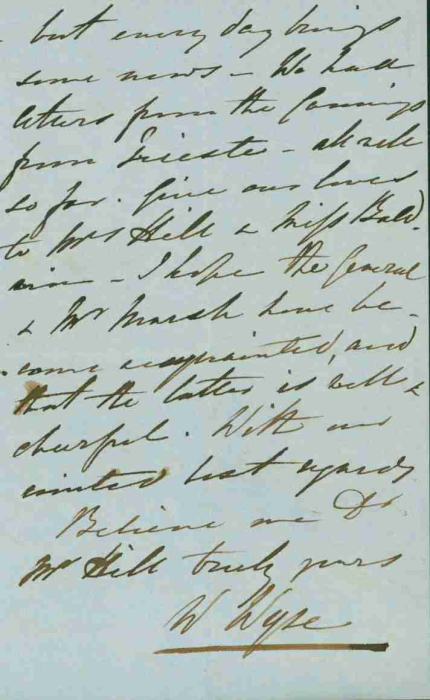 - but every day brings
some news - We had
letters from the Cannings
from Trieste - all well
so far. Give our loves
to Mrs Hill & Miss Bald-
win - I hope the General
& Mr Marsh have be-
come acquainted, and
that the latter is well &
cheerful. With our
united best regards
Believe me Dr
Mr Hill truly yours
W Wyse